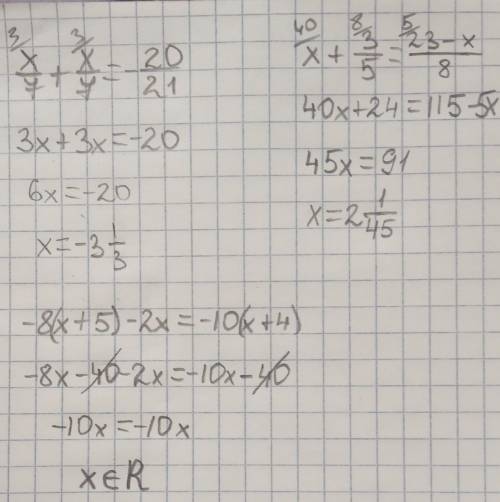 ³/x/7 + ³/x/7 = -20/21
3x+3x=-20
6x=-20
x=-3 1/3
⁴⁰/x + ⁸/3/5 = ⁵/23-x/8
40x+24=115-5x
45x=91
x=2 1/45
-8(x+5)-2x=-10(x+4)
-8x-40-2x=-10x-40
-10x=-10x
x∈R